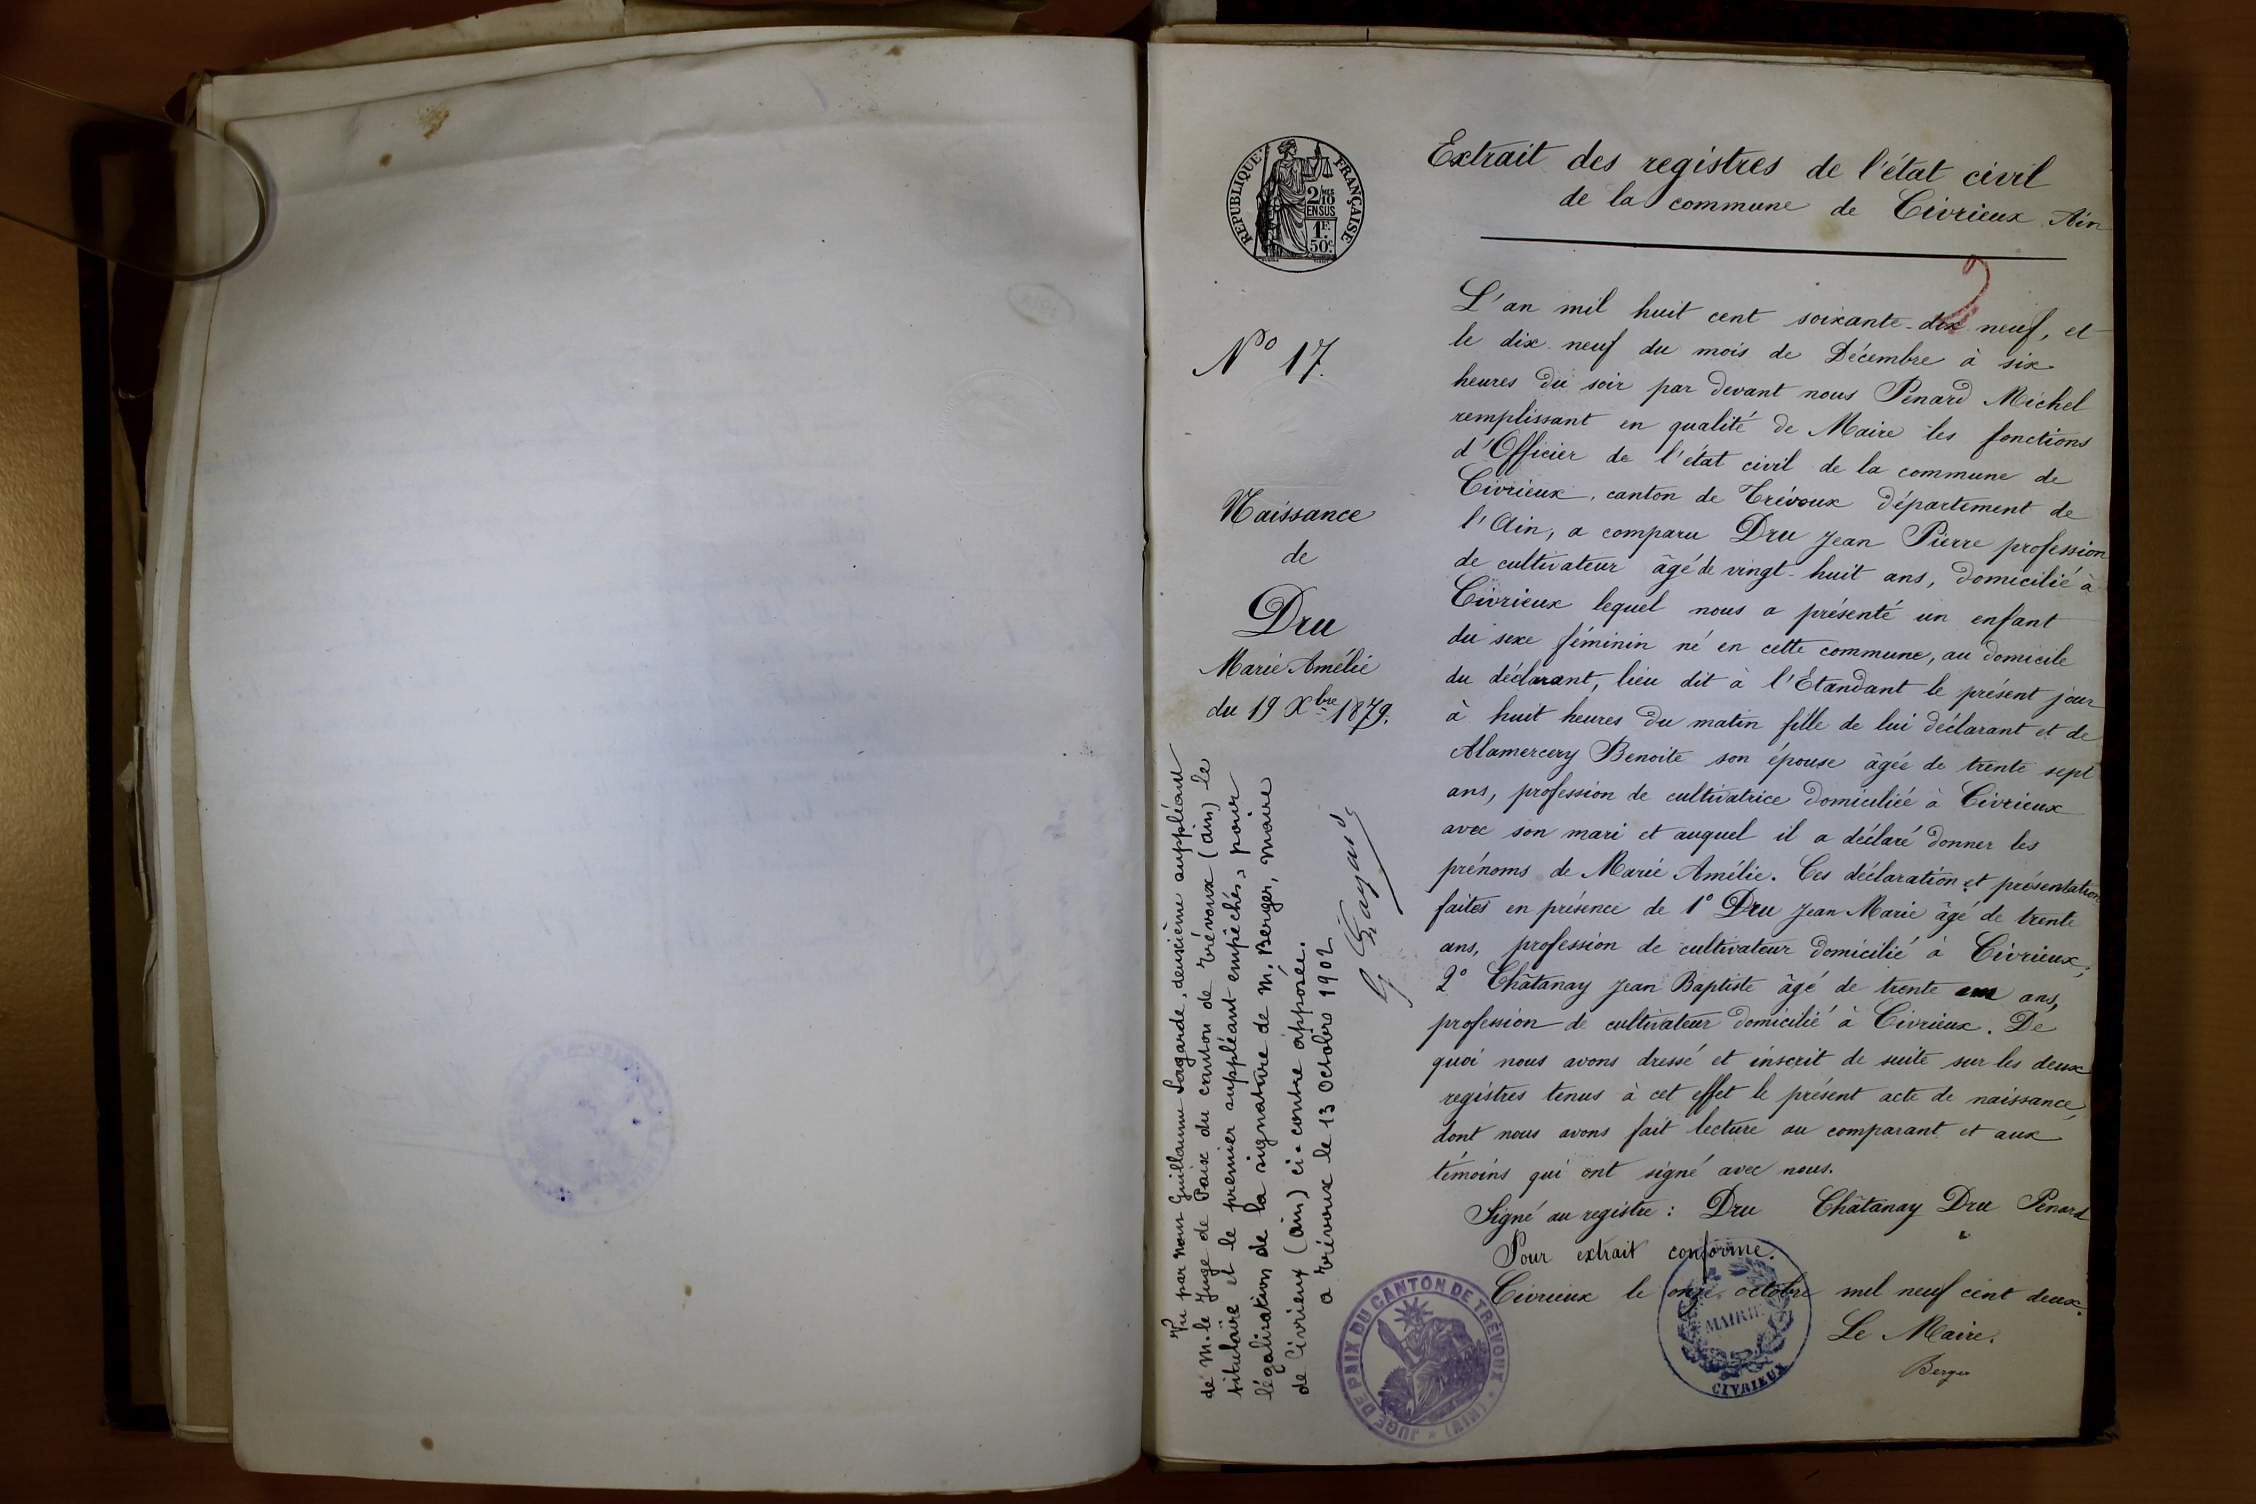 RÉPUBLIQUE FRANÇAISE
2/10 MES
EN SUS
1F.
50c.
Extrait des registres de l'état civil
de la commune de Civrieux Ain
2
N° 17.
Naissance
de
Dru
Marie Amélie
du 19 Xbre 1879.
L'an mil huit cent soixante-dix neuf, et
le dix neuf du mois de Décembre à six
heures du soir par devant nous Penard Michel
remplissant en qualité de Maire les fonctions
d'Officier de l'état civil de la commune de
Civrieux, canton de Trévoux département de
l'Ain, a comparu Dru Jean Pierre profession
de cultivateur âgé de vingt-huit ans, domicilié à
Civrieux lequel nous a présenté un enfant
du sexe féminin né en cette commune, au domicile
du déclarant, lieu dit à l'Etandant le présent jour
à huit heures du matin fille de lui déclarant et de
Alamercery Benoite son épouse âgée de trente sept
ans, profession de cultivatrice domiciliée à Civrieux
avec son mari et auquel il a déclaré donner les
prénoms de Marie Amélie. Ces déclaration et présentation
faites en présence de 1° Dru Jean Marie âgé de trente
ans, profession de cultivateur domicilié à Civrieux;
2° Châtanay Jean Baptiste âgé de trente ans,
profession de cultivateur domicilié à Civrieux. De
quoi nous avons dressé et inscrit de suite sur les deux
registres tenus à cet effet le présent acte de naissance,
dont nous avons fait lecture au comparant et aux
témoins qui ont signé avec nous.
Signé au registre : Dru Châtanay Dru Penard
Pour extrait conforme.
Civrieux le onze octobre mil neuf cent deux.
Le Maire.
Berger
MAIRIE
CIVRIEUX
Vu par nous Guillaume Lagarde, deuxième suppléant
de M. le Juge de Paix du canton de Trévoux (ain) le
titulaire et le premier suppléant empêchés, pour
légalisation de la signature de M. Berger, maire
de Civrieux (ain) ci-contre apposée.
a Trévoux le 13 Octobre 1902
JUGE DE PAIX DU CANTON DE TRÉVOUX * (AIN) *